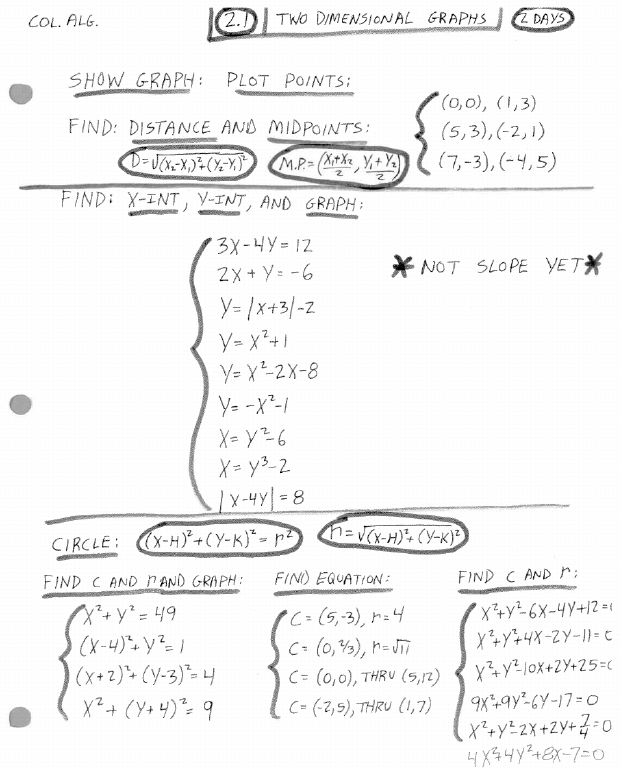 COL. ALG. 2.1 TWO DIMENSIONAL GRAPHS 2 DAYS
SHOW GRAPH: PLOT POINTS:
FIND: DISTANCE AND MIDPOINTS:
D=√(X₂-X₁)²+(Y₂-Y₁)² M.P.=(X₁+X₂/2, Y₁+Y₂/2)
(0,0), (1,3)
(5,3), (-2,1)
(7,-3), (-4,5)
FIND: X-INT, Y-INT, AND GRAPH:
3X-4Y=12
2X+Y=-6
Y=|X+3|-2
Y=X²+1
Y=X²-2X-8
Y=-X²-1
X=Y²-6
X=Y³-2
|X-4Y|=8
*NOT SLOPE YET*
CIRCLE: (X-H)²+(Y-K)²=r² r=√(X-H)²+(Y-K)²
FIND C AND r AND GRAPH:
X²+Y²=49
(X-4)²+Y²=1
(X+2)²+(Y-3)²=4
X²+(Y+4)²=9
FIND EQUATION:
C=(5,-3), r=4
C=(0,⅔), r=√11
C=(0,0), THRU (5,12)
C=(-2,5), THRU (1,7)
FIND C AND r:
X²+Y²-6X-4Y+12=
X²+Y²+4X-2Y-11=
X²+Y²-10X+2Y+25=
9X²+9Y²-6Y-17=0
X²+Y²-2X+2Y+7/4=0
4X²+4Y²+8X-7=0